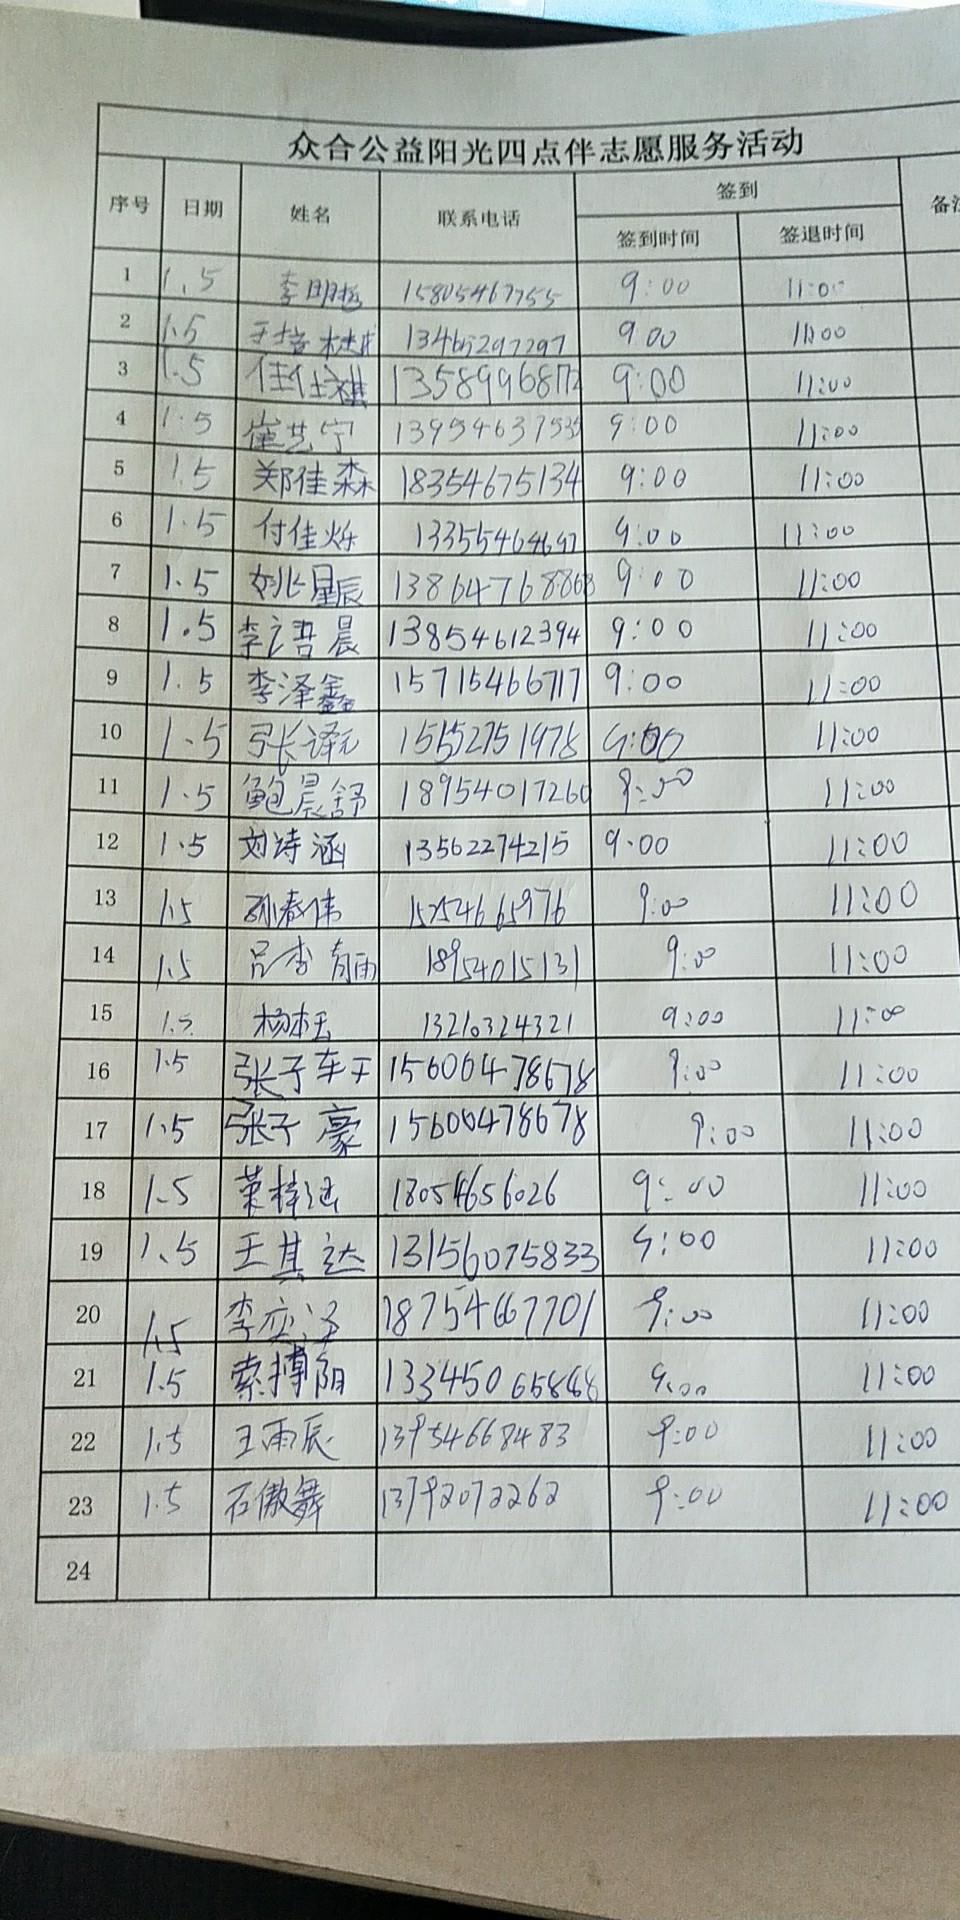 众合公益阳光四点伴志愿服务活动
序号 日期 姓名 联系电话 签到 备注
签到时间 签退时间
1 1.5 李明 15805467755 9:00 11:00
2 1.5 王培 13465297297 9:00 11:00
3 1.5 13589968172 9:00 11:00
4 1.5 崔艺宁 13954637535 9:00 11:00
5 1.5 郑佳森 18354675134 9:00 11:00
6 1.5 付佳烁 13355464697 9:00 11:00
7 1.5 姚星辰 13864768868 9:00 11:00
8 1.5 李语晨 13854612394 9:00 11:00
9 1.5 李泽鑫 15715466717 9:00 11:00
10 1.5 张译元 9:00 11:00
11 1.5 鲍晨舒 18954017260 9:00 11:00
12 1.5 刘诗涵 13562274215 9:00 11:00
13 1.5 孙春伟 15254665976 9:00 11:00
14 1.5 吕李 18954015131 9:00 11:00
15 1.5 杨林玉 13210324321 9:00 11:00
16 1.5 张子轩 15606478678 9:00 11:00
17 1.5 张子豪 15606478678 9:00 11:00
18 1.5 荣梓 18054656026 9:00 11:00
19 1.5 王其达 13156075833 9:00 11:00
20 1.5 李 18754667701 9:00 11:00
21 1.5 索搏阳 9:00 11:00
22 1.5 王雨辰 13954668483 9:00 11:00
23 1.5 石傲舞 13792072262 9:00 11:00
24